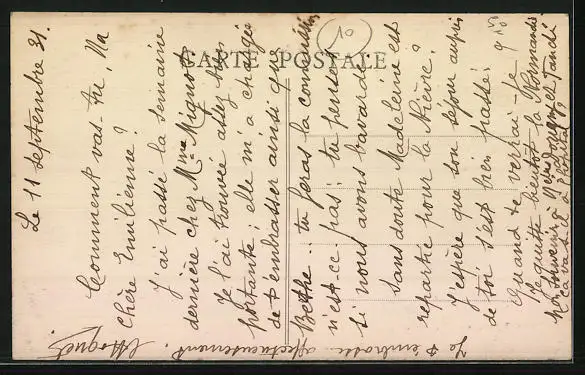 CARTE POSTALE
Le 11 septembre 31.
Comment vas-tu Ma
chère Emilienne?
J'ai passé la semaine
dernière chez Mme Mignot.
Je l'ai trouvée assez bien
portante; elle m'a chargée
de t'embrasser ainsi que
Berthe. tu feras la commission
n'est-ce pas; tu penses
si nous avons bavardé.
Sans doute Madeleine est
repartie pour la Nièvre?
J'espère que son séjour auprès
de toi s'est bien passé.
Quand te verrai-je
Je quitte bientôt la Normandie
Mon souvenir à Mme et
ça va-t-il à l'hôpital?
Je t'embrasse affectueusement.